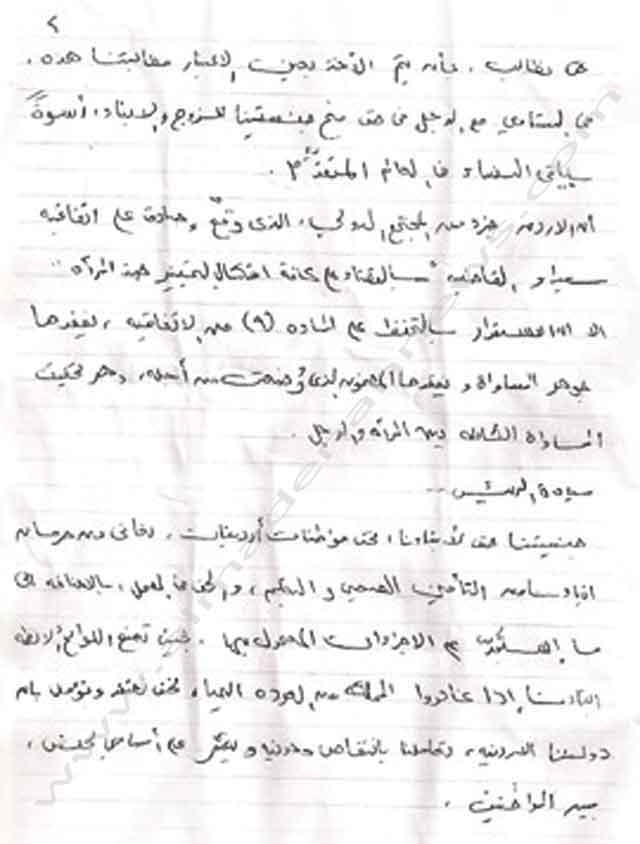 ٢
نحن نطالب، بأن يتم الأخذ بعين الاعتبار مطالبتنا هذه،
في التساوي مع الرجل في حق منح جنسيتنا للزوج والأبناء، أسوةً
بباقي النساء في العالم المتقدّم.
أن الأردن جزء من المجتمع الدولي، الذي وقّع وصادق على اتفاقية
سيداو القاضية "بالقضاء على كافة أشكال التمييز ضد المرأة"
إلا أن الاستمرار بالتحفظ على المادة (٩) من الاتفاقية، يفقدها
جوهر المساواة و يفقدها المضمون الذي وُضعت من أجله، وهو تحقيق
المساواة الشاملة بين المرأة والرجل.
سيادة الرئيس --
جنسيتنا حق لأبناؤنا، نحن مواطنات أردنيات، نعاني من حرمان
أبناءنا من التأمين الصحي والتعليم، والحق في العمل، بالإضافة إلى
الإجراءات المعمول بها. حيث تمنع اللوائح
أبناءنا إذا غادروا المملكة من العودة إليها، نحن نعتقد ونؤمن بأن
دولتنا الأردنية، تعاملنا بانتقاص ودونية و تميّز على أساس الجنس،
بين المواطنين.